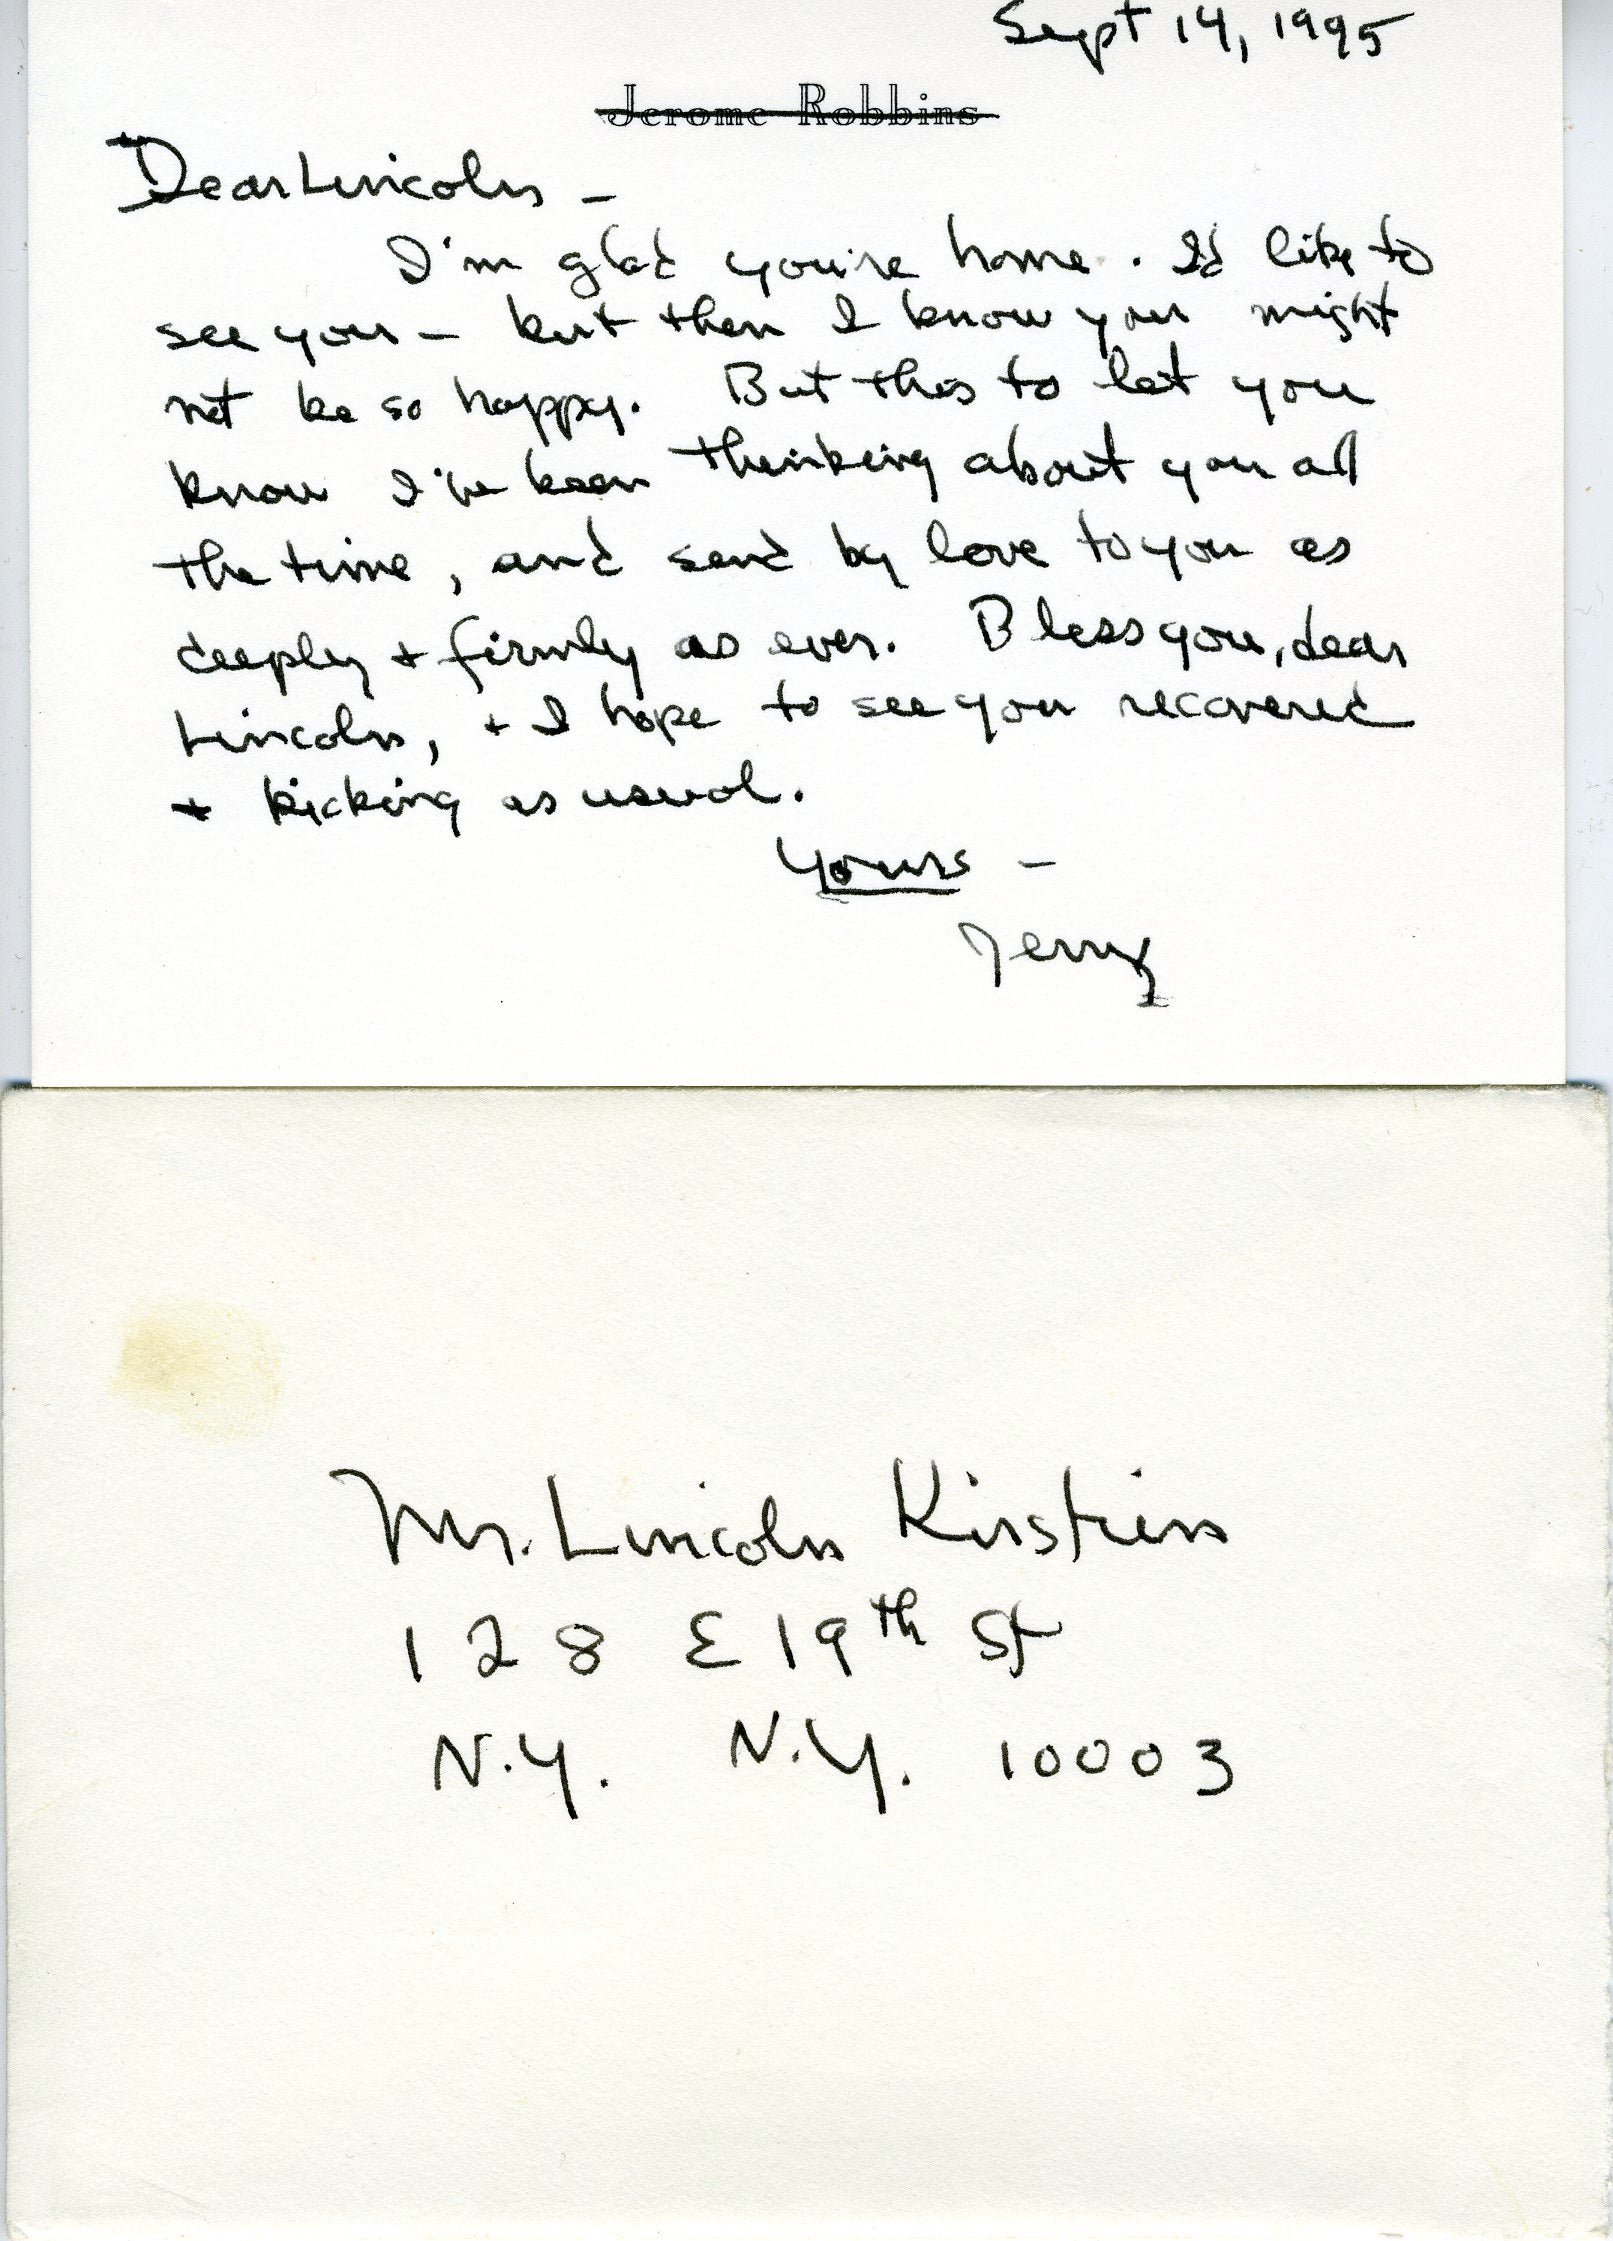 Sept 14, 1995
Jerome Robbins
Dear Lincoln –
I'm glad you're home. I'd like to
see you – but then I know you might
not be so happy. But this to let you
know I've been thinking about you all
the time, and send by love to you as
deeply + firmly as ever. Bless you, dear
Lincoln, + I hope to see you recovered
+ kicking as usual.
Yours –
Jerry
Mr. Lincoln Kirstein
128 E 19th St
N.Y. N.Y. 10003